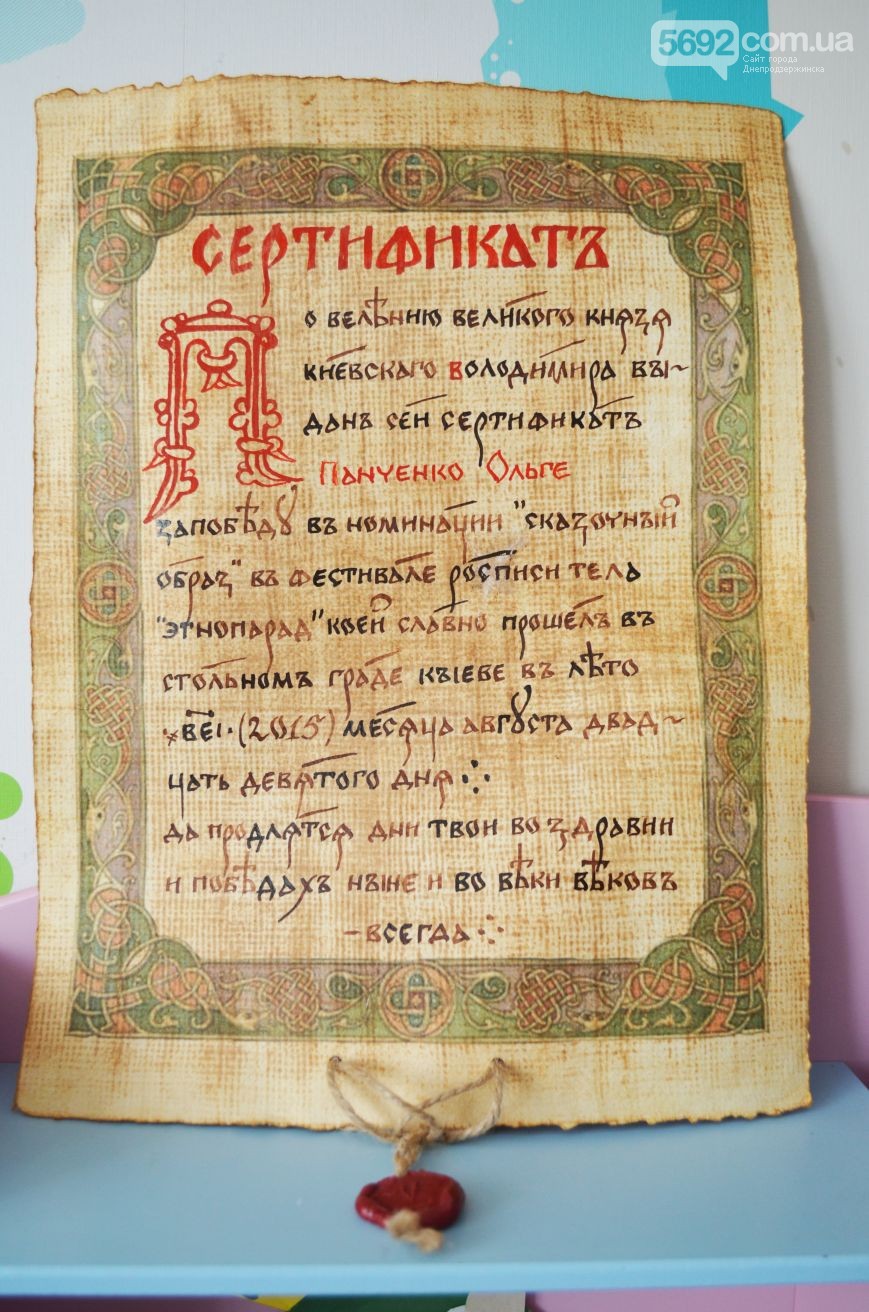 5692com.ua
Сайт города
Днепродзержинска
СЕРТИФИКАТЪ
ПО ВЕЛѢНИЮ ВЕЛИКОГО КНѦЗѦ
КИЕВСКАГО ВОЛОДИМИРА ВЫ~
ДАНЪ СЕЙ СЕРТИФИКАТЪ
ПАНЧЕНКО ОЛЬГЕ
ЗАПОБѢДꙊ ВЪ НОМИНАЦИИ "СКАЗОЧНЫЙ
ОБРАЗ" ВЪ ФЕСТИВАЛЕ РОСПИСИ ТЕЛА
"ЭТНОПАРАД" КОЕЙ СЛАВНО ПРОШЕЛЪ ВЪ
СТОЛЬНОМЪ ГРАДЕ КЫЕВЕ ВЪ ЛѢТО
҂ВЕІ·(2015) МЕСѦЦА АВГꙊСТА ДВАД~
ЦАТЬ ДЕВѦТОГО ДНѦ ⁖
ДА ПРОДЛѦТСѦ ДНИ ТВОИ ВО ЗДРАВИИ
И ПОБѢДАХЪ НЫНЕ И ВО ВѢКИ ВѢКОВЪ
-ВСЕГДА⁖